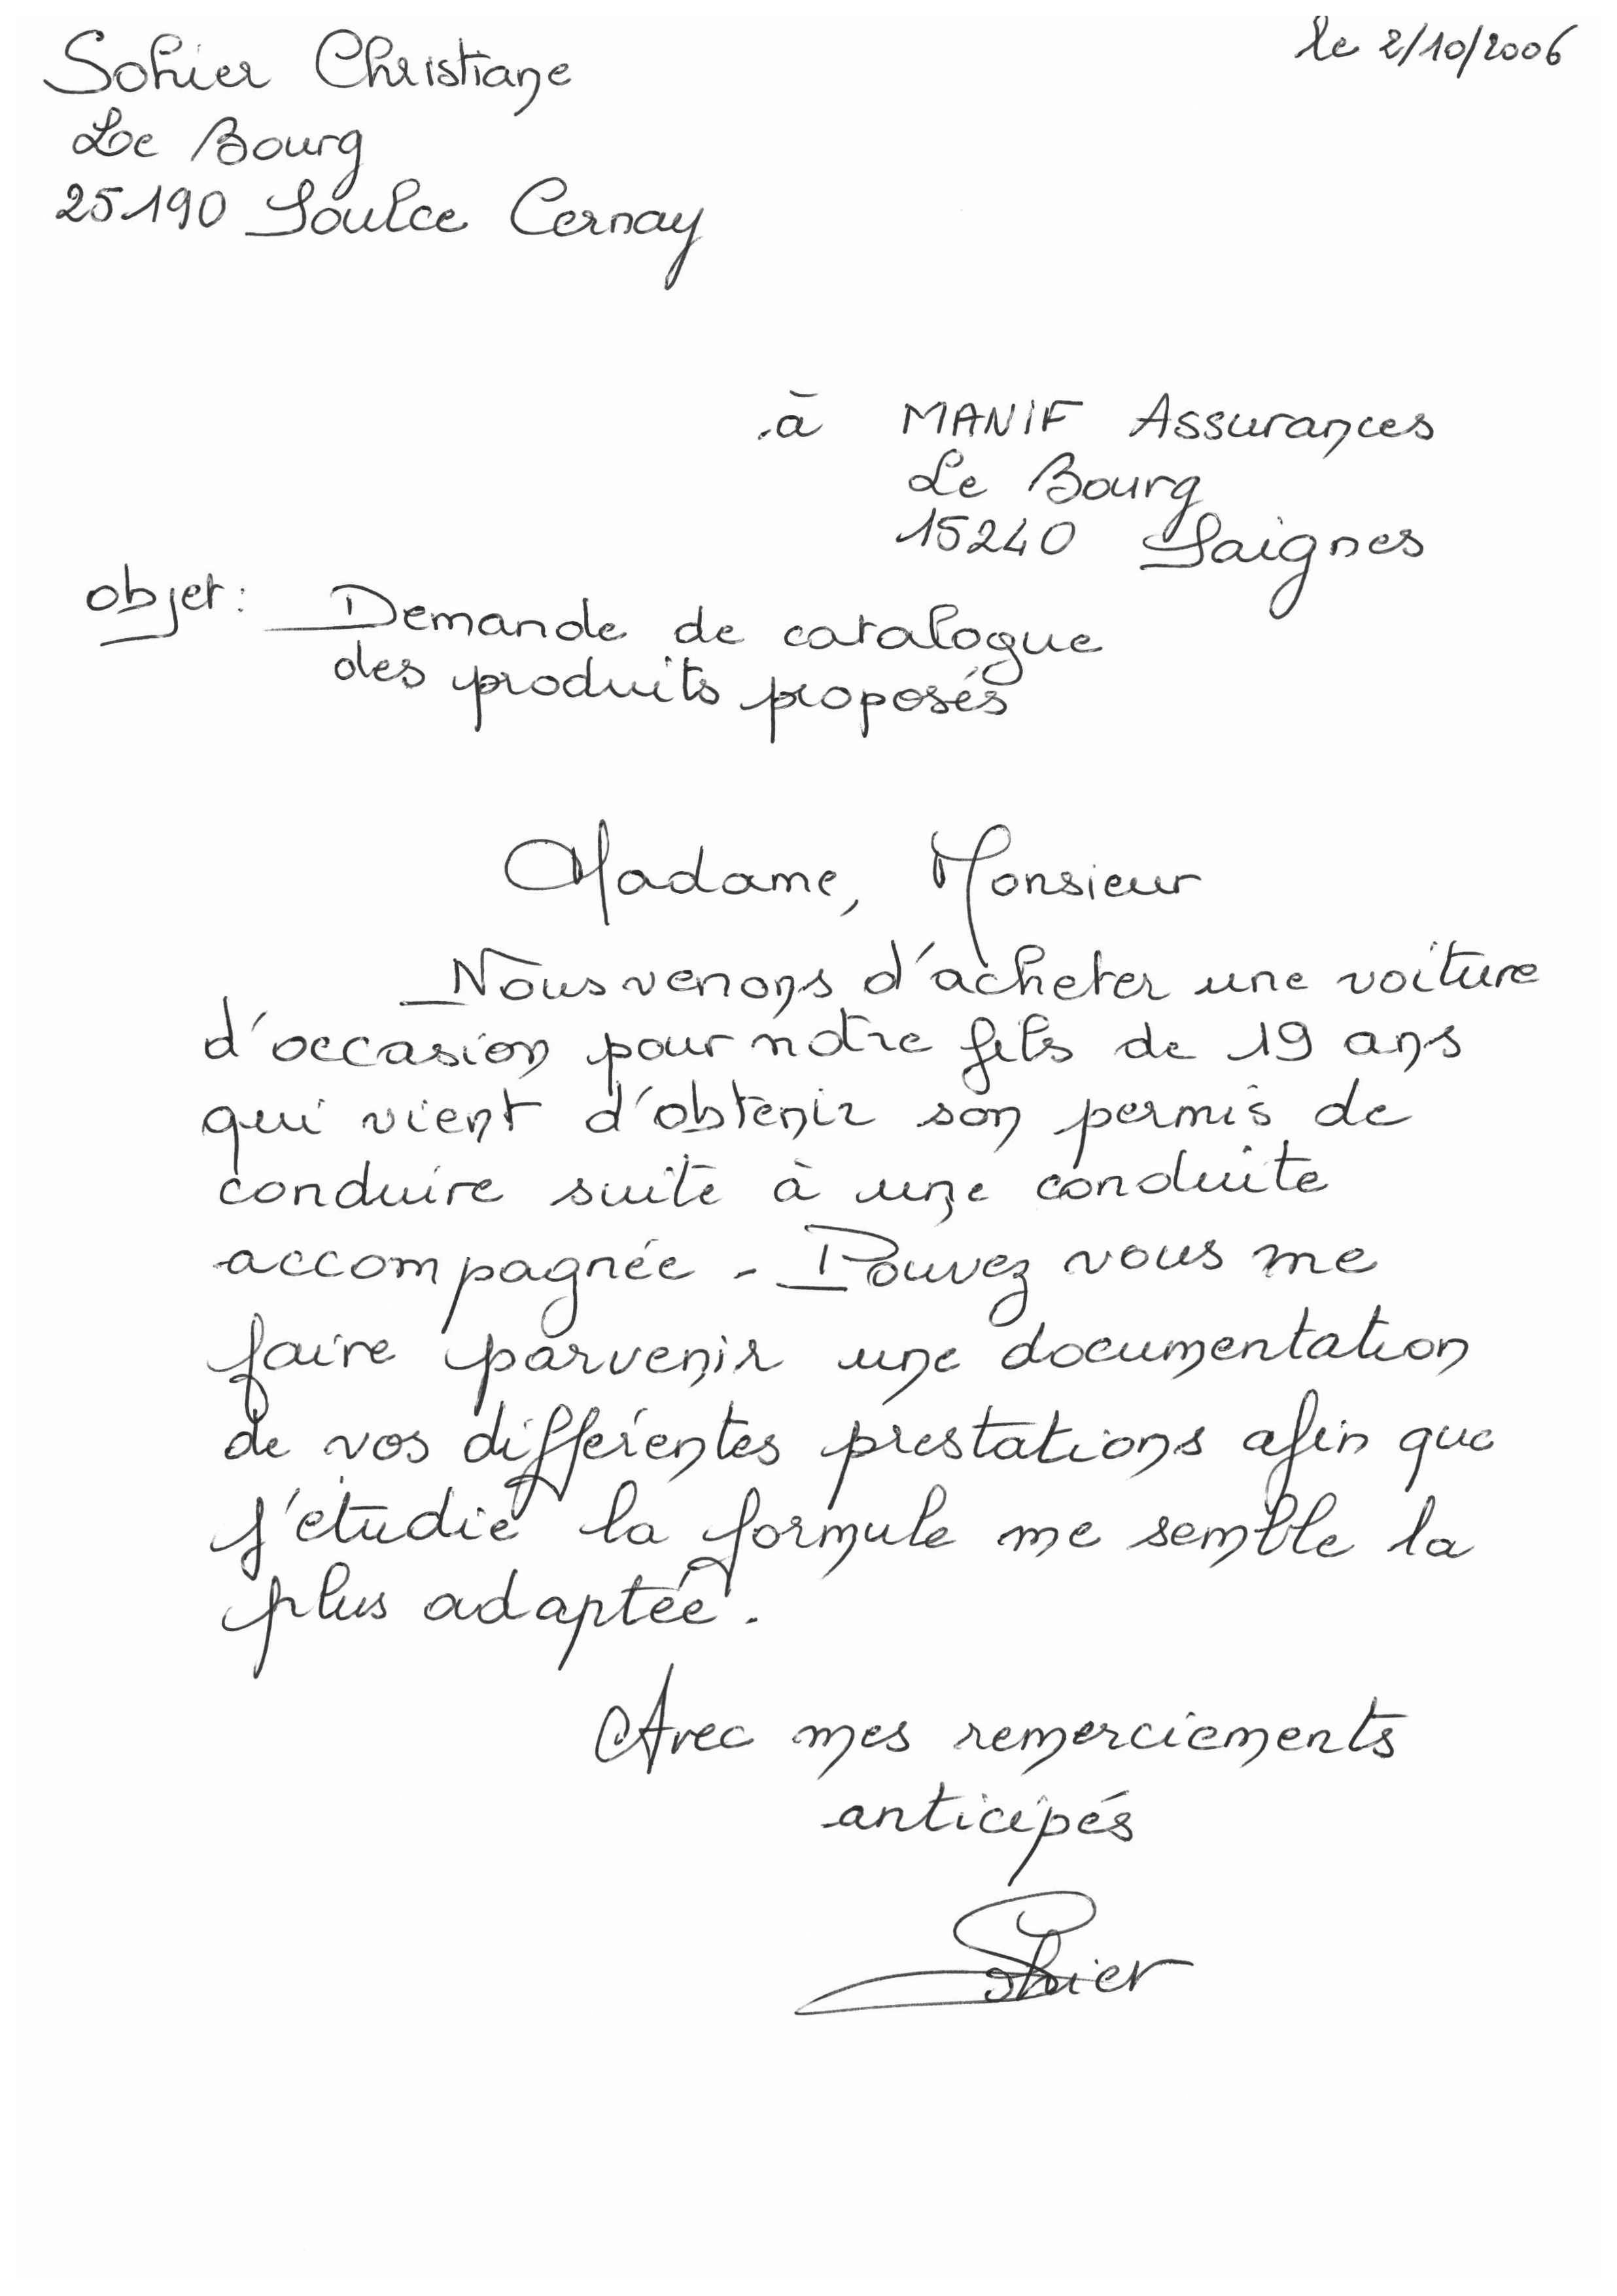 Sohier Christiane
le 2/10/2006
Le Bourg
25190 Soulce Cernay
à MANIF Assurances
Le Bourg
15240 Saignes
objet: Demande de catalogue
des produits proposés
Madame, Monsieur
Nous venons d'acheter une voiture
d'occasion pour notre fils de 19 ans
qui vient d'obtenir son permis de
conduire suite à une conduite
accompagnée - Pouvez vous me
faire parvenir une documentation
de vos différentes prestations afin que
j'étudie la formule me semble la
plus adaptée.
Avec mes remerciements
anticipés
Sohier